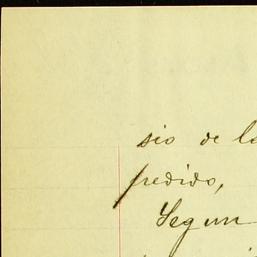 sio de la
pedido,
Segun